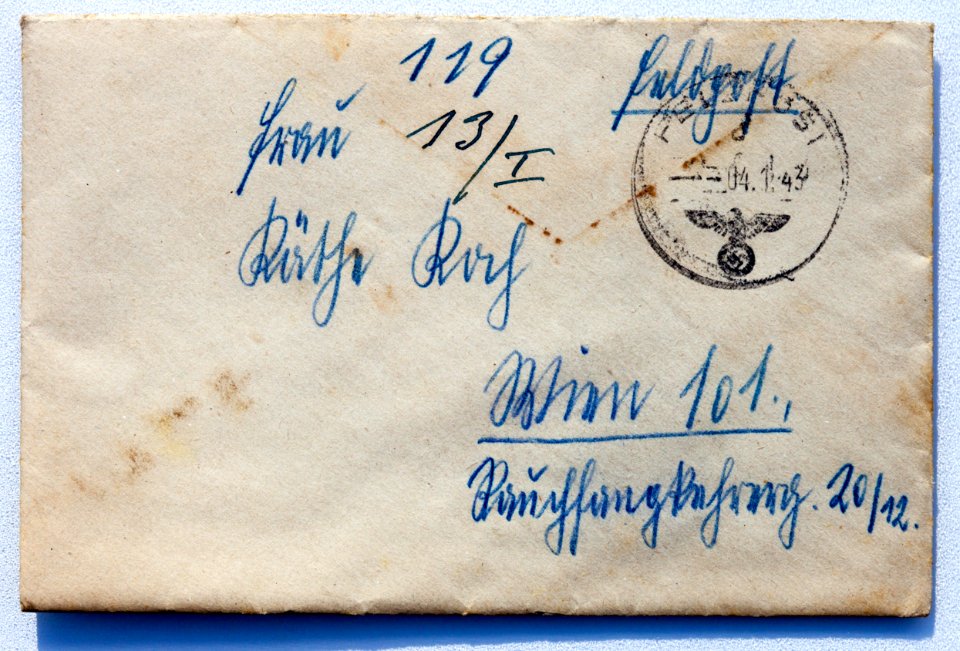 119
Feldpost
Frau
13/I
Käthe Koch
FELDPOST
d
04.1.43
Wien 101.,
Rauchfangkehrerg. 20/12.